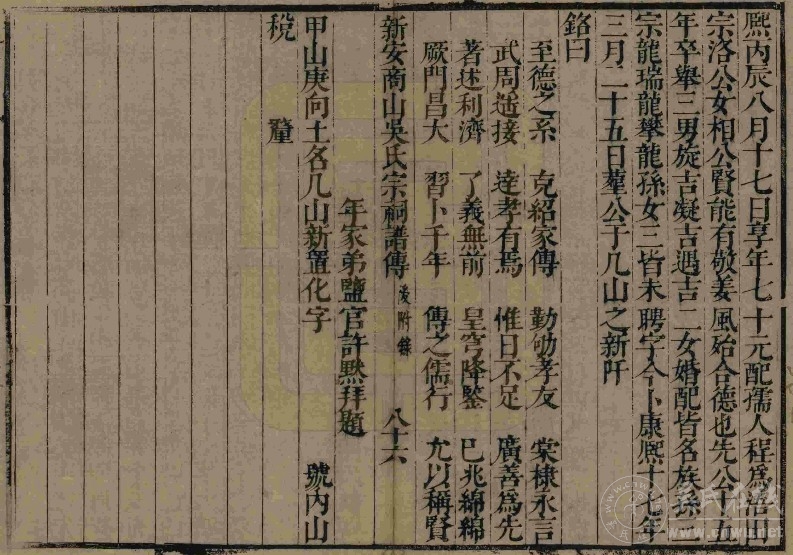 熈丙辰八月十七日享年七十元配孺人程爲
宗洛公女相公賢能有敬姜風殆合德也先公十五
年卒舉三男旋吉凝吉遇吉二女婚配皆名族孫
宗龍瑞龍攀龍孫女三皆未聘字今卜康熈十七年
三月二十五日葬公于几山之新阡
銘曰
至德之系 克紹家傳 勤劬孝友 棠棣永言
武周遞接 達孝有焉 惟日不足 廣善爲先
著述利濟 了義無前 皇穹降鑒 巳兆綿綿
厥門昌大 習卜千年 傳之儒行 尤以稱賢
新安商山吳氏宗祠譜傳 後附錄 八十六
年家弟鹽官許黙拜題
甲山庚向土名几山新置化字 號內山
稅 釐